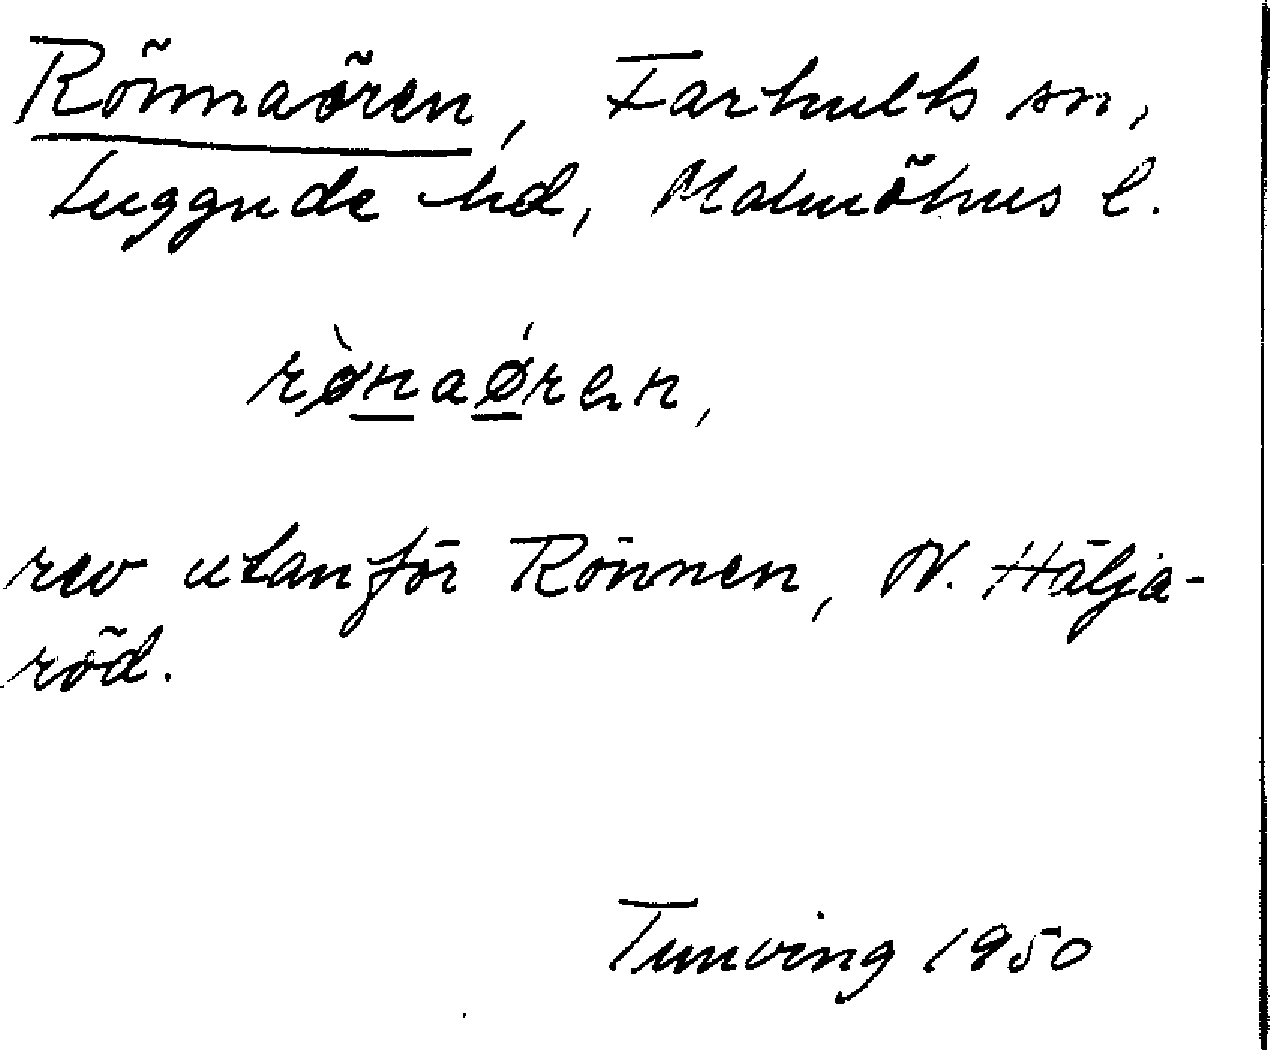 Rönnaören, Farhults sn,
Luggude hd, Malmöhus l.
rø̀naǿren,
rev utanför Rönnen, N. Hälja-
röd.
Tunving 1950